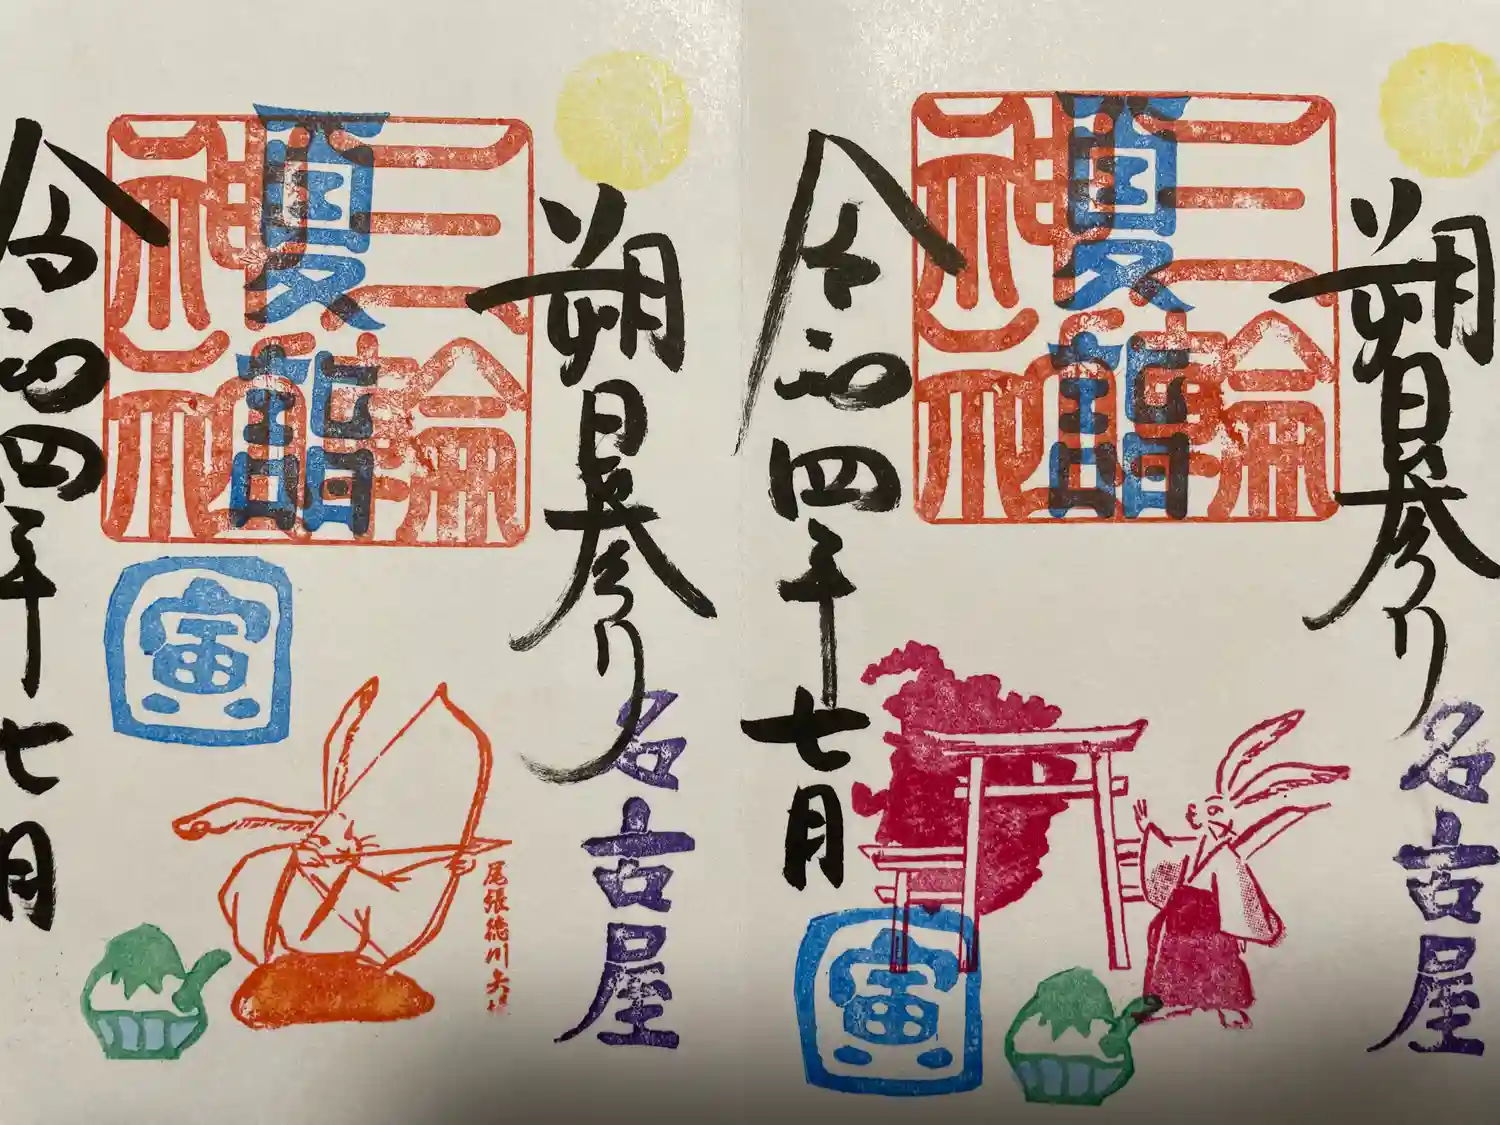 朔日参り
名古屋
三輪
神社
夏詣
令和四年七月
寅
尾張徳川矢場
朔日参り
名古屋
三輪
神社
夏詣
令和四年七月
寅